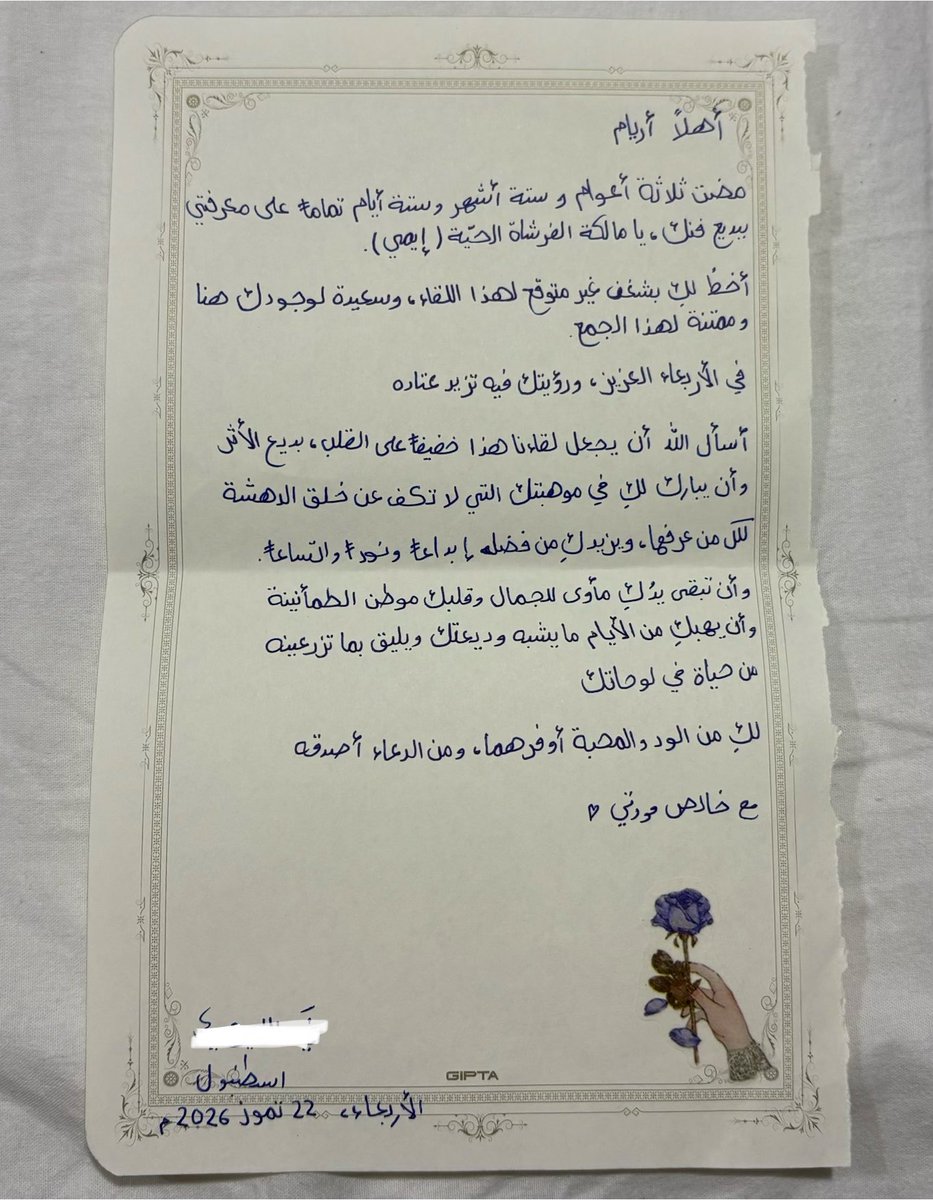 أهلاً أريام
مضت ثلاثة أعوام وستة أشهر وستة أيام تماماً على معرفتي
ببديع فنك، يا مالكة الفرشاة الحيّة (إيمي).
أخطُ لكِ بشغف غير متوقع لهذا اللقاء، وسعيدة لوجودك هنا
وممتنة لهذا الجمع.
في الأربعاء العزيز، ورؤيتك فيه تزيد عتاده
أسأل الله أن يجعل لقاءنا هذا خفيفاً على القلب، بديع الأثر
وأن يبارك لكِ في موهبتك التي لا تكف عن خلق الدهشة
لكل من عرفها، ويزيدكِ من فضله إبداعاً ونوراً واتساعاً.
وأن تبقى يدُكِ مأوى للجمال وقلبك موطن الطمأنينة
وأن يهبكِ من الأيام ما يشبه وديعتك ويليق بما تزرعينه
من حياة في لوحاتك
لكِ من الود والمحبة أوفرهما، ومن الدعاء أصدقه
مع خالص مودتي ♡
GIPTA
اسطنبول
الأربعاء، 22 تموز 2026م